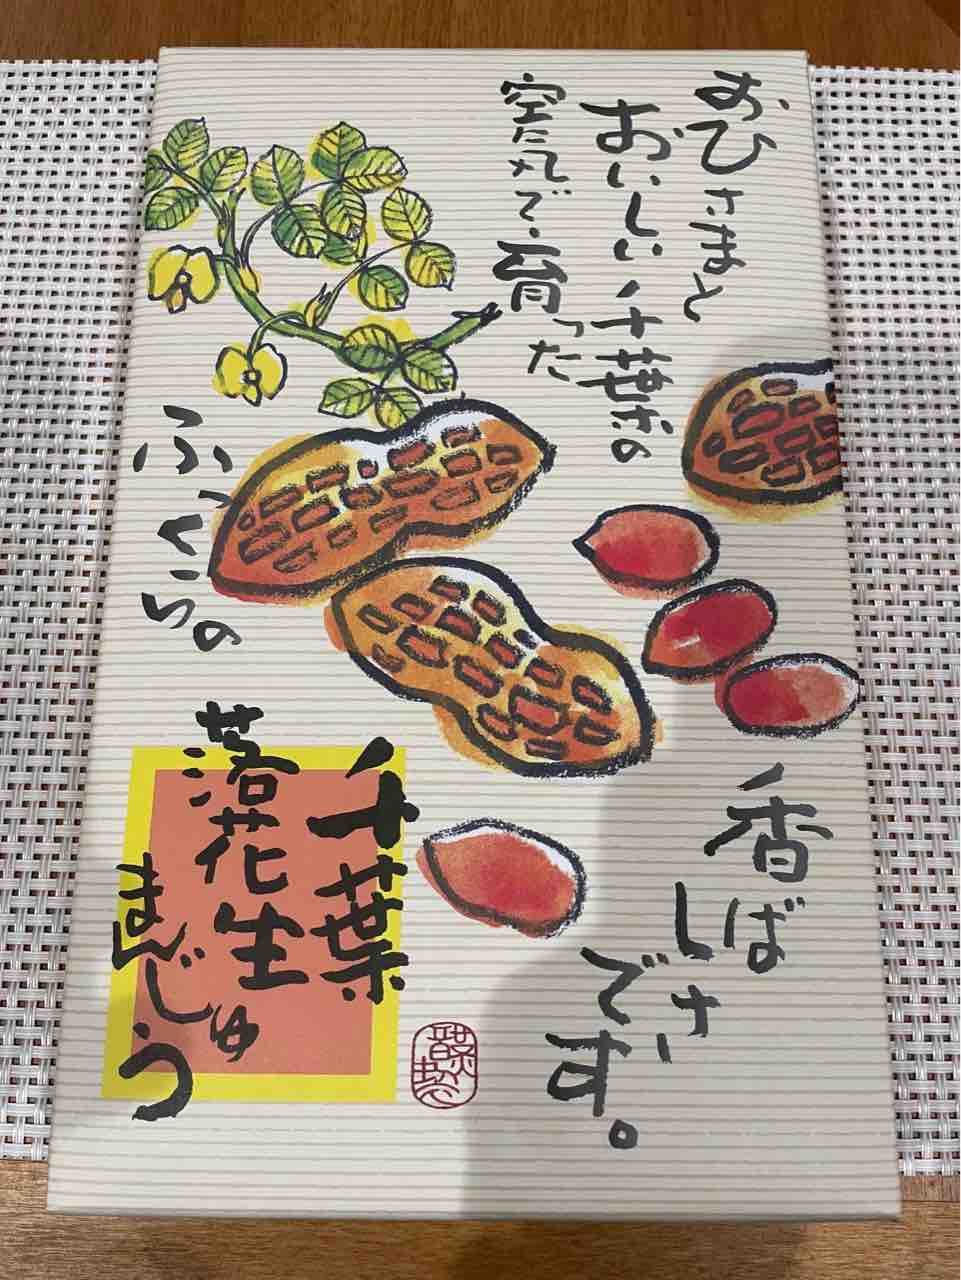 おひさまと
おいしい千葉の
空気で育った
ふっくらの
香ばしさ
です。
千葉
落花生
まんじゅう